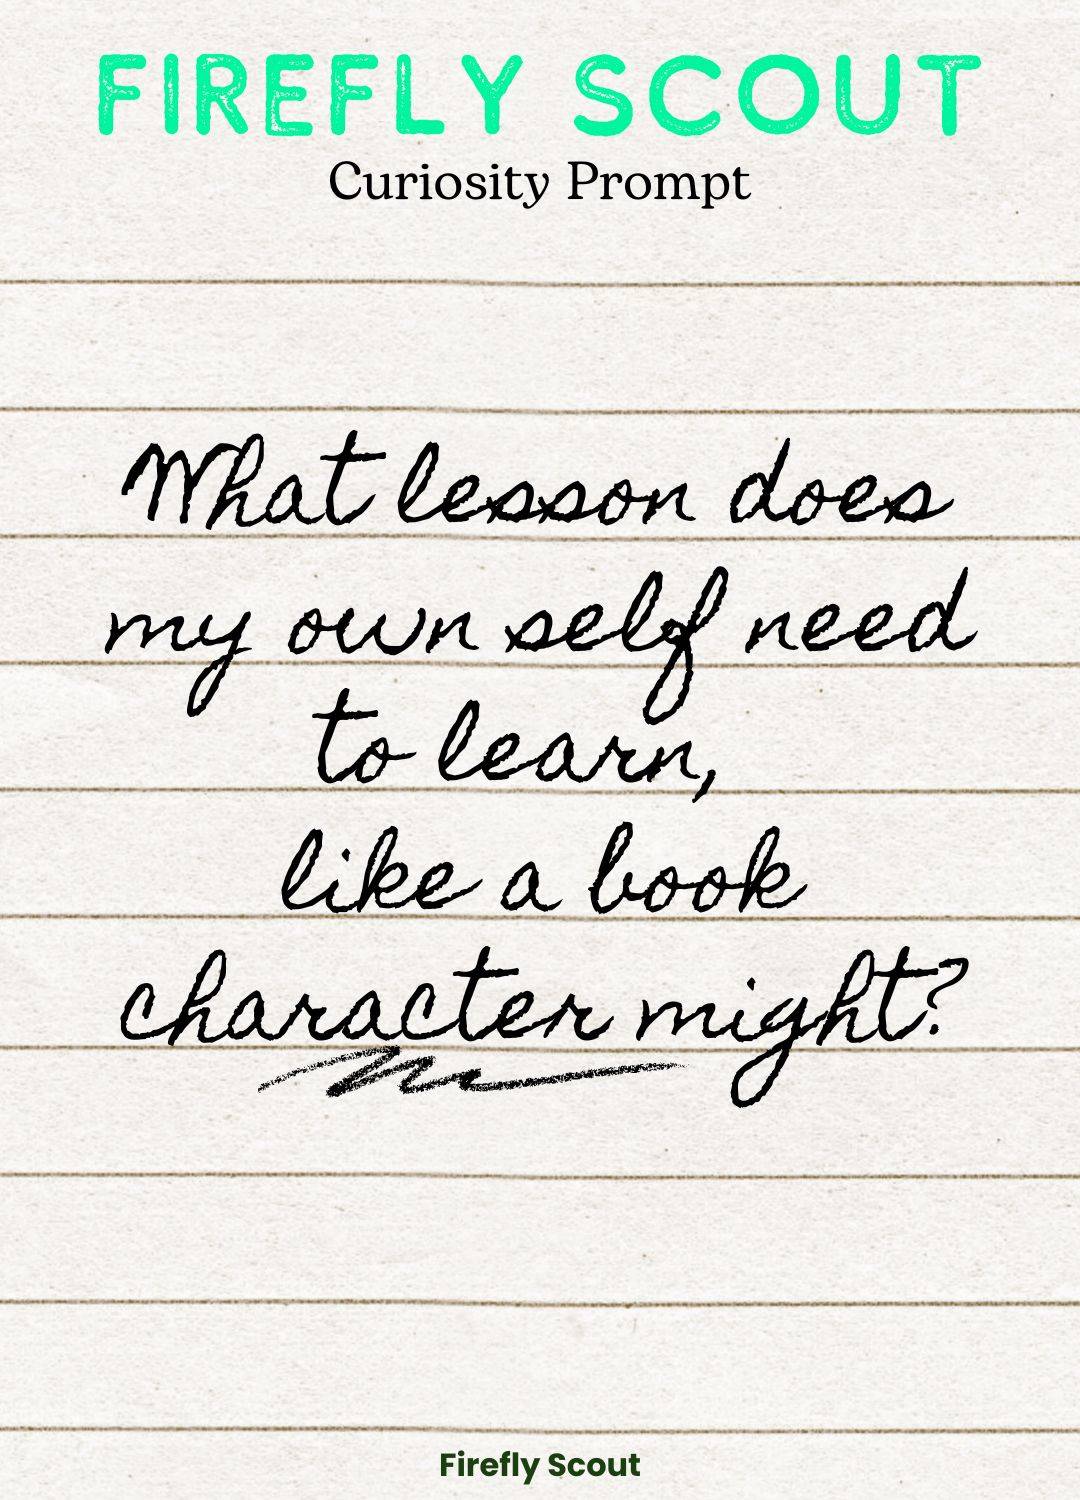 FIREFLY SCOUT
Curiosity Prompt
What lesson does
my own self need
to learn,
like a book
character might?
Firefly Scout